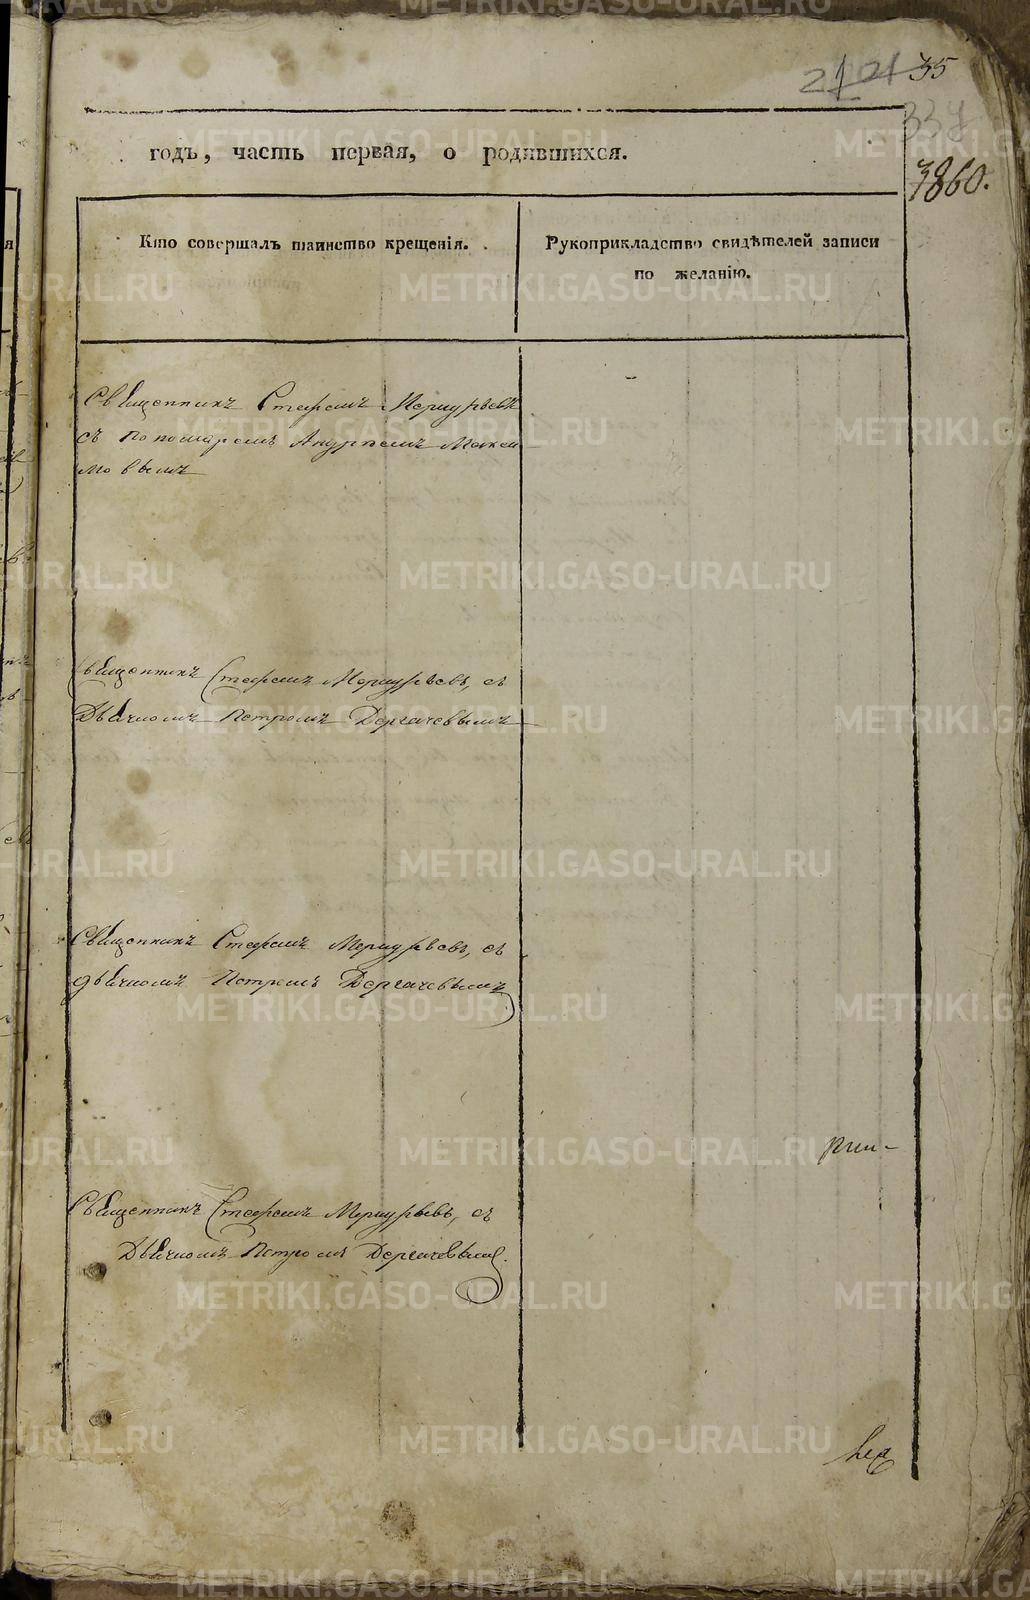 21 21 35
337
годъ, часть первая, о родившихся.
1860.
Кто совершалъ таинство крещенія.
Рукоприкладство свидѣтелей записи
по желанію.
Священникъ Стефанъ Меркурьевъ
съ пономаремъ Андреемъ Макси
мовымъ
Священникъ Стефанъ Меркурьевъ, съ
Дьячкомъ Петромъ Дергачевымъ
Священникъ Стефанъ Меркурьевъ, съ
дьячкомъ Петромъ Дергачевымъ
Священникъ Стефанъ Меркурьевъ, съ
Дьячкомъ Петромъ Дергачевымъ.
METRIKI.GASO-URAL.RU